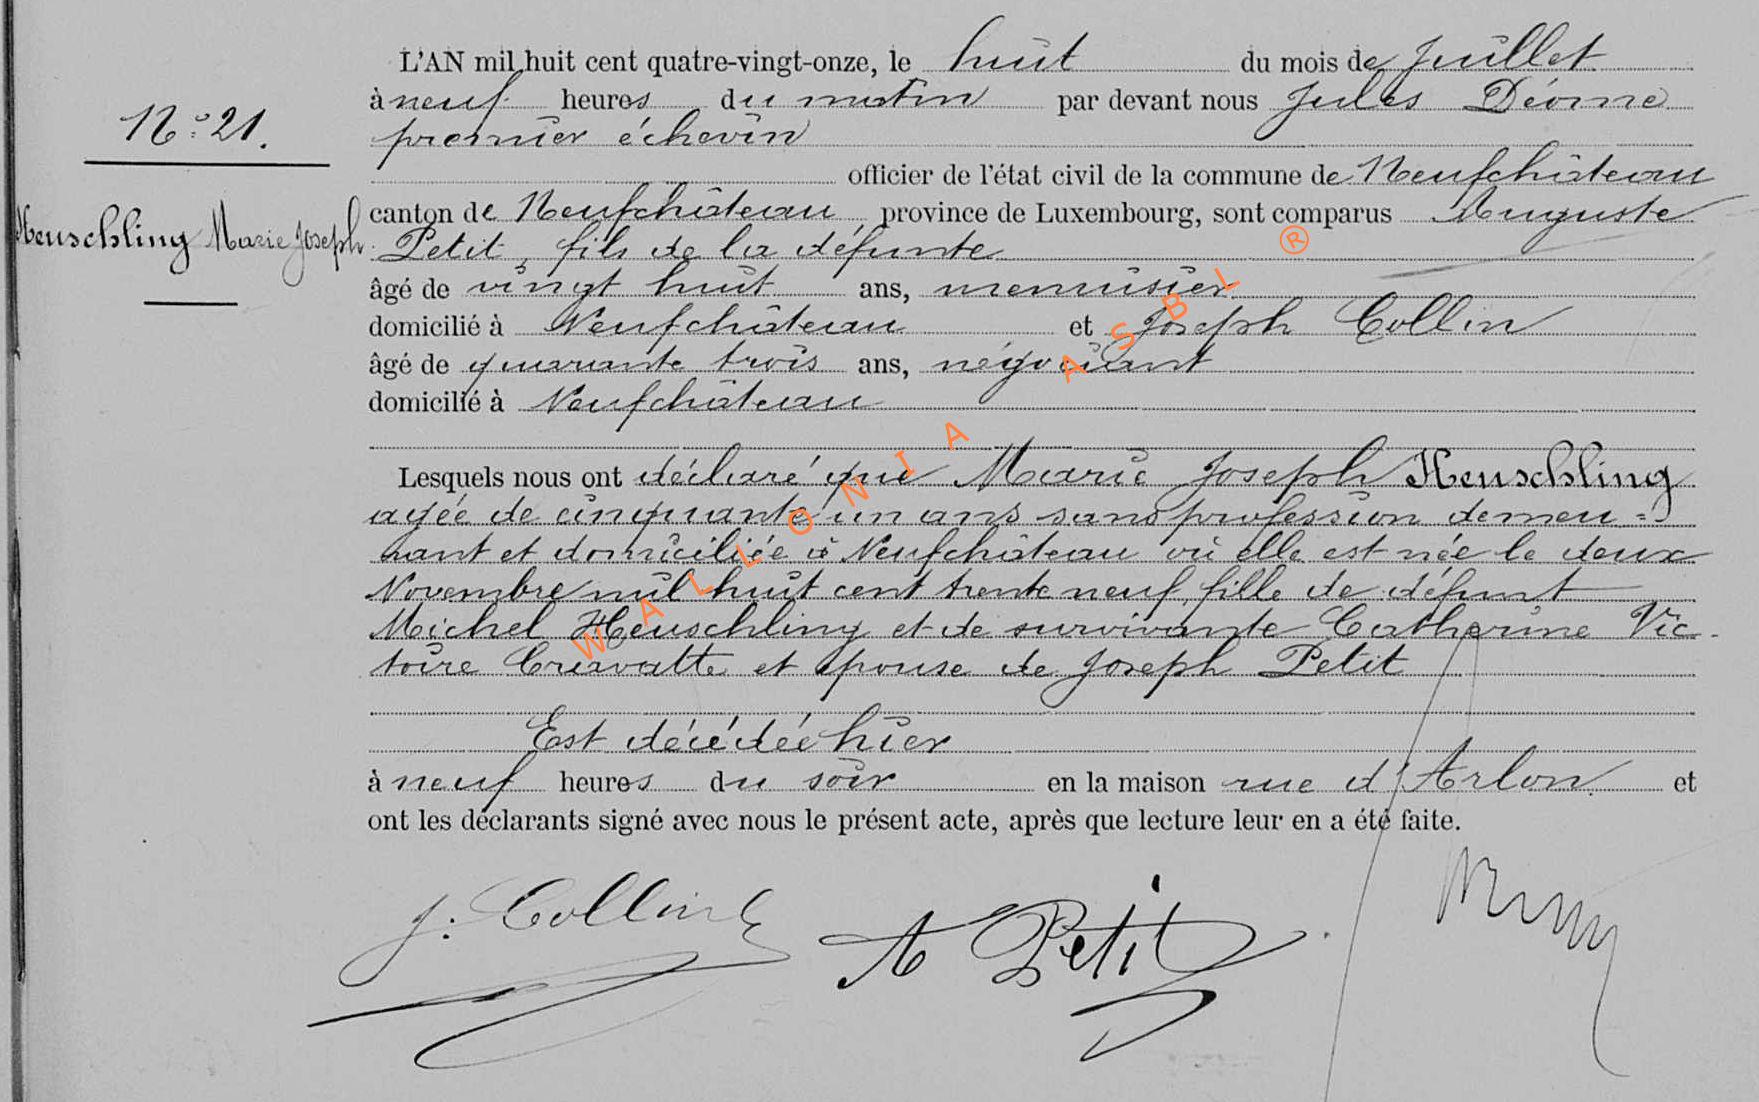 L'AN mil huit cent quatre-vingt-onze, le huit du mois de Juillet
à neuf heures du matin par devant nous Jules Déome
N° 21.
premier échevin
officier de l'état civil de la commune de Neufchâteau
Heuschling Marie Joseph
canton de Neufchâteau province de Luxembourg, sont comparus Auguste
Petit, fils de la défunte
âgé de vingt huit ans, menuisier
domicilié à Neufchâteau et Joseph Collin
âgé de quarante trois ans, négociant
domicilié à Neufchâteau
Lesquels nous ont déclaré que Marie Joseph Heuschling
agée de cinquante un ans sans profession demeu=
rant et domiciliée à Neufchâteau où elle est née le deux
Novembre mil huit cent trente neuf, fille de défunt
Michel Heuschling et de survivante Catherine Vic-
toire Cravatte et épouse de Joseph Petit
Est décédée hier
à neuf heures du soir en la maison rue d'Arlon et
ont les déclarants signé avec nous le présent acte, après que lecture leur en a été faite.
J. Collin A Petit
WALLONIA ASBL ®